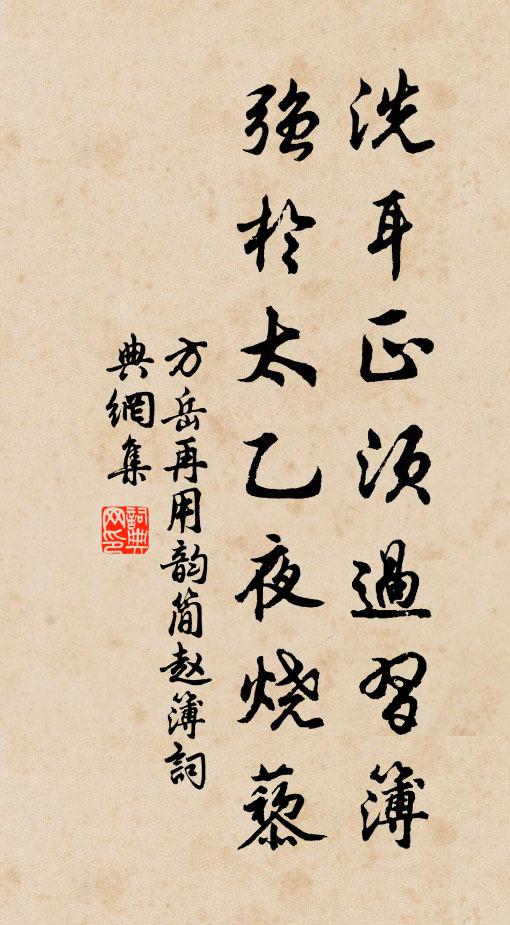 洗耳正须過習簿
强於太乙夜烧藜
方岳再用韵简赵簿詞
典網集
詞典
网印